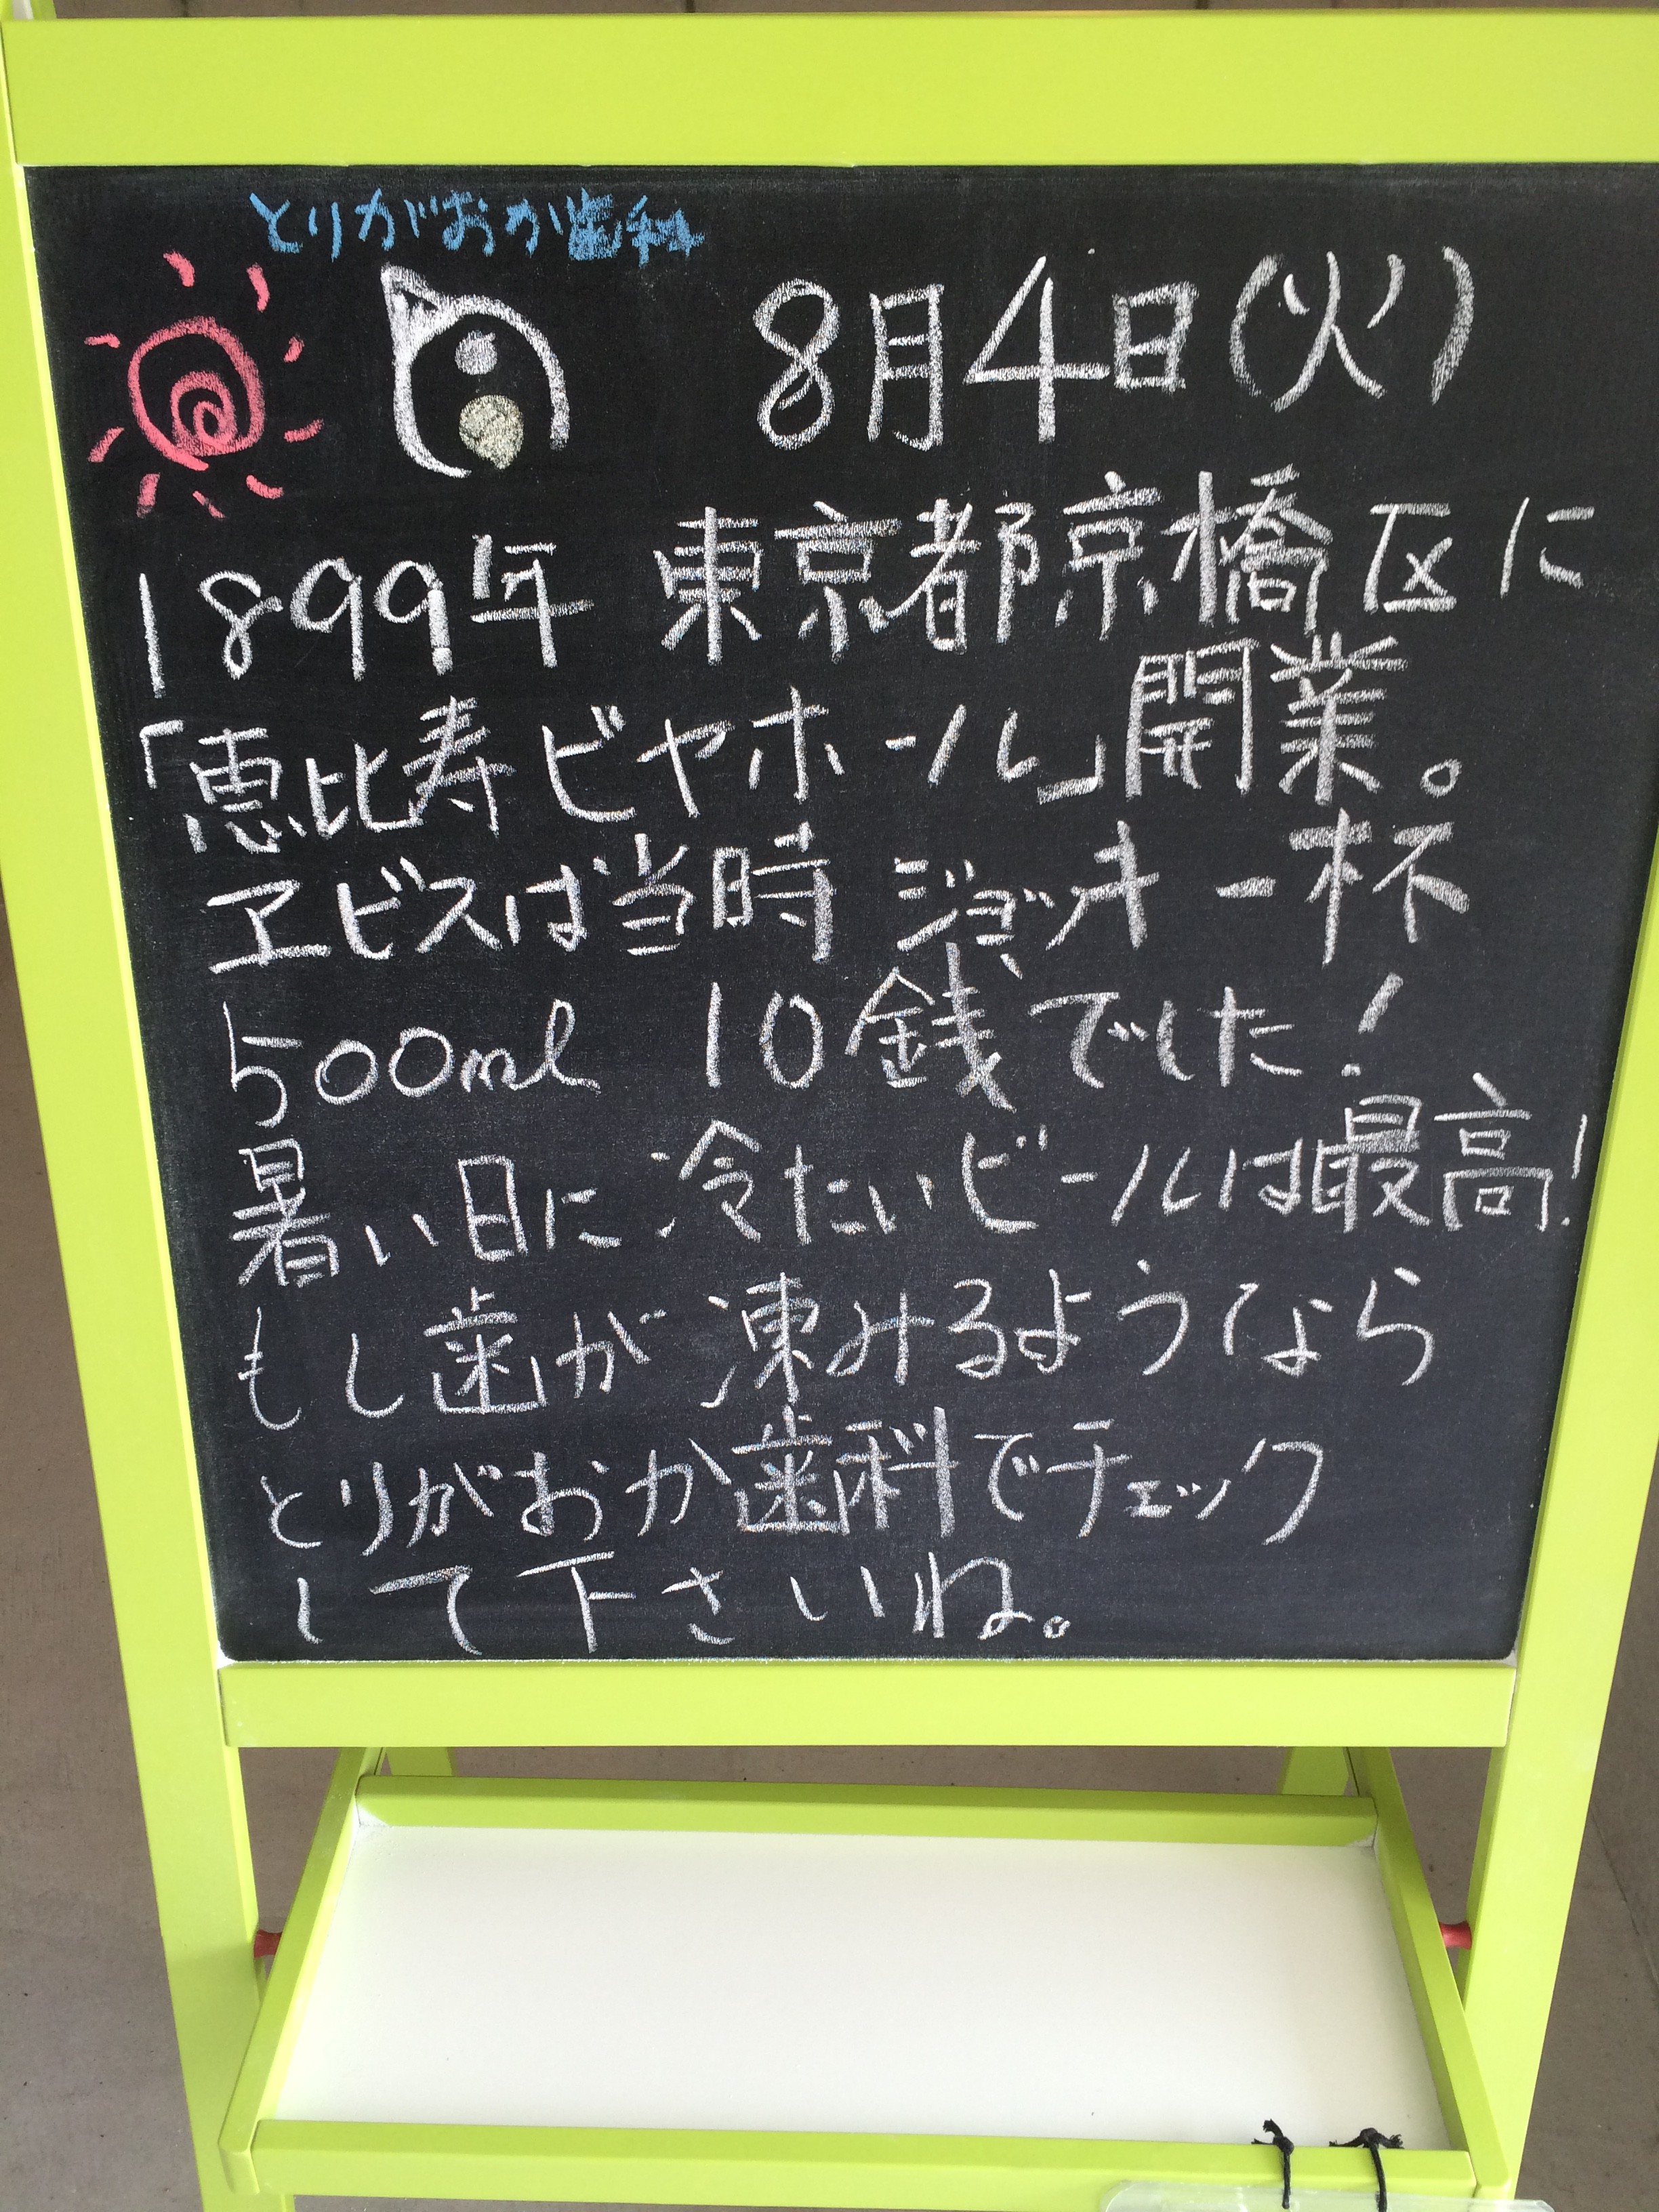 とりがおか歯科
8月4日(火)
1899年 東京都京橋区に
「恵比寿ビヤホール」開業。
ヱビスは当時 ジョッキ一杯
500ml 10銭でした!
暑い日に冷たいビールは最高!
もし歯が凍みるようなら
とりがおか歯科でチェック
して下さいね。